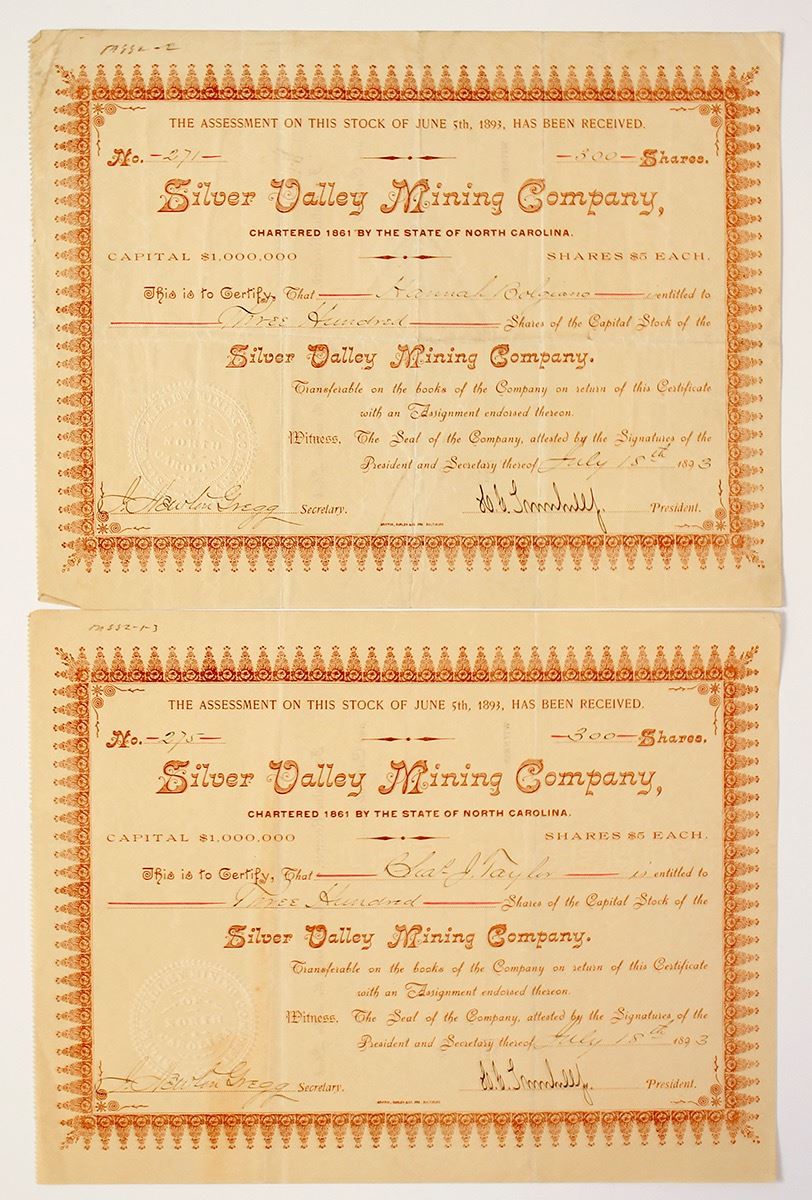 THE ASSESSMENT ON THIS STOCK OF JUNE 5th, 1893, HAS BEEN RECEIVED.
No. 271 300 Shares.
Silver Valley Mining Company,
CHARTERED 1861 BY THE STATE OF NORTH CAROLINA.
CAPITAL $1,000,000 SHARES $5 EACH.
This is to Certify, That Hannah Bolgiano is entitled to
Three Hundred Shares of the Capital Stock of the
Silver Valley Mining Company.
Transferable on the books of the Company on return of this Certificate
with an Assignment endorsed thereon.
Witness, The Seal of the Company, attested by the Signatures of the
President and Secretary thereof July 18th 1893
J. Newton Gregg Secretary. President.
THE ASSESSMENT ON THIS STOCK OF JUNE 5th, 1893, HAS BEEN RECEIVED.
No. 275 300 Shares.
Silver Valley Mining Company,
CHARTERED 1861 BY THE STATE OF NORTH CAROLINA.
CAPITAL $1,000,000 SHARES $5 EACH.
This is to Certify, That Chas. J. Taylor is entitled to
Three Hundred Shares of the Capital Stock of the
Silver Valley Mining Company.
Transferable on the books of the Company on return of this Certificate
with an Assignment endorsed thereon.
Witness, The Seal of the Company, attested by the Signatures of the
President and Secretary thereof July 18th 1893
J. Newton Gregg Secretary. President.